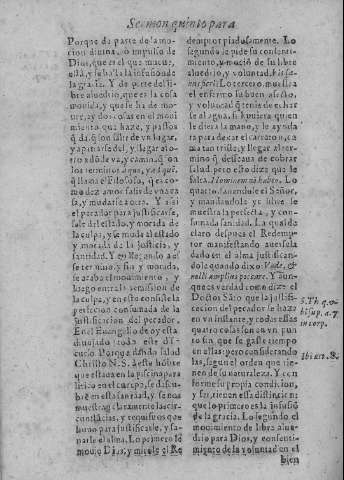 Sermon quinto para
Porque de parte de la mo-
cion diuina, o impulso de
Dios, que es el que mueue,
està, y se halla la infusion de
la gracia. Y de parte del li-
bre aluedrio, que es la cosa
mouida, y que se ha de mo-
uer, ay dos cosas en el moui
miento que haze, y passos
q̃ dà, q̃ son salir de vn lugar,
y apartarse del, y llegar al o-
tro adonde va, y caminã, q̃ son
los terminos
q̃ llama el Filosofo, q̃ es co-
mo dezimos salir de vn estra
y, y mudarse a otra. Y assi
el pecador para justificarse,
sale del estado, y morada de
la culpa, y se muda al estado
y morada de la justicia, y
santidad. Y en llegando a es
se termino, y fin, y morada,
se acaba el mouimiento, y
luego entra la remission de
la culpa, y en esto consiste la
perfecion consumada de la
justificacion del pecador.
En el Euangelio de oy està
dibujado todo este dis-
curso. Porque dando salud
Christo N. S. a este hombre
que estaua en la piscina para
litico en el cuerpo, se dibu-
xò en esta sanidad, y se nos
muestra claramente las cir-
cunstancias, y requisitos que
huuo para justificarle, y sa-
narle el alma. Lo primero le
mouio Dios, y mirole el Re
demptor piadosamente. Lo
segundo le pide su consenti-
miento, y mouiò de su libre
aluedrio, y voluntad. Vis sa-
nus fieri? Lo tercero, muestra
el enfermo su buen afecto,
y voluntad q̃ tenia de echar
se al agua, si huuiera quien
le diera la mano, y le ayuda
ra para dexar el carreton, ca
ma tan triste, y llegar al ter-
mino q̃ desseaua de cobrar
salud pero esto dize que le
falta. Hominem non habeo. Lo
quarto, sanandole el Señor,
y mandandole yr libre, le
muestra la perfecta, y con-
sumada sanidad. La qual da
claro despues el Redemp-
tor manifestando auersela
dado en el alma justifican-
dole quando dixo: Vade, &
noli amplius peccare. Y aun-
que es verdad como dize el
Doctor Santo que la justifi-
cacion del pecador se haze
en vn instante, y todas estas
quatro cosas son en vn pun
to sin que se gaste tiempo
en ellas: pero considerando
las, segun el orden que tie-
nen de su naturaleza. Y con
forme su propia condicion,
y ser, tienen esta distincion:
que lo primero es la infusiõ
de la gracia. Lo segundo el
mouimiento de libre alue-
drio para Dios, y consenti-
miento de la voluntad en el
bien
S. Th. q.
hi sup. a. 7
in corp.
Ibi art. 8.